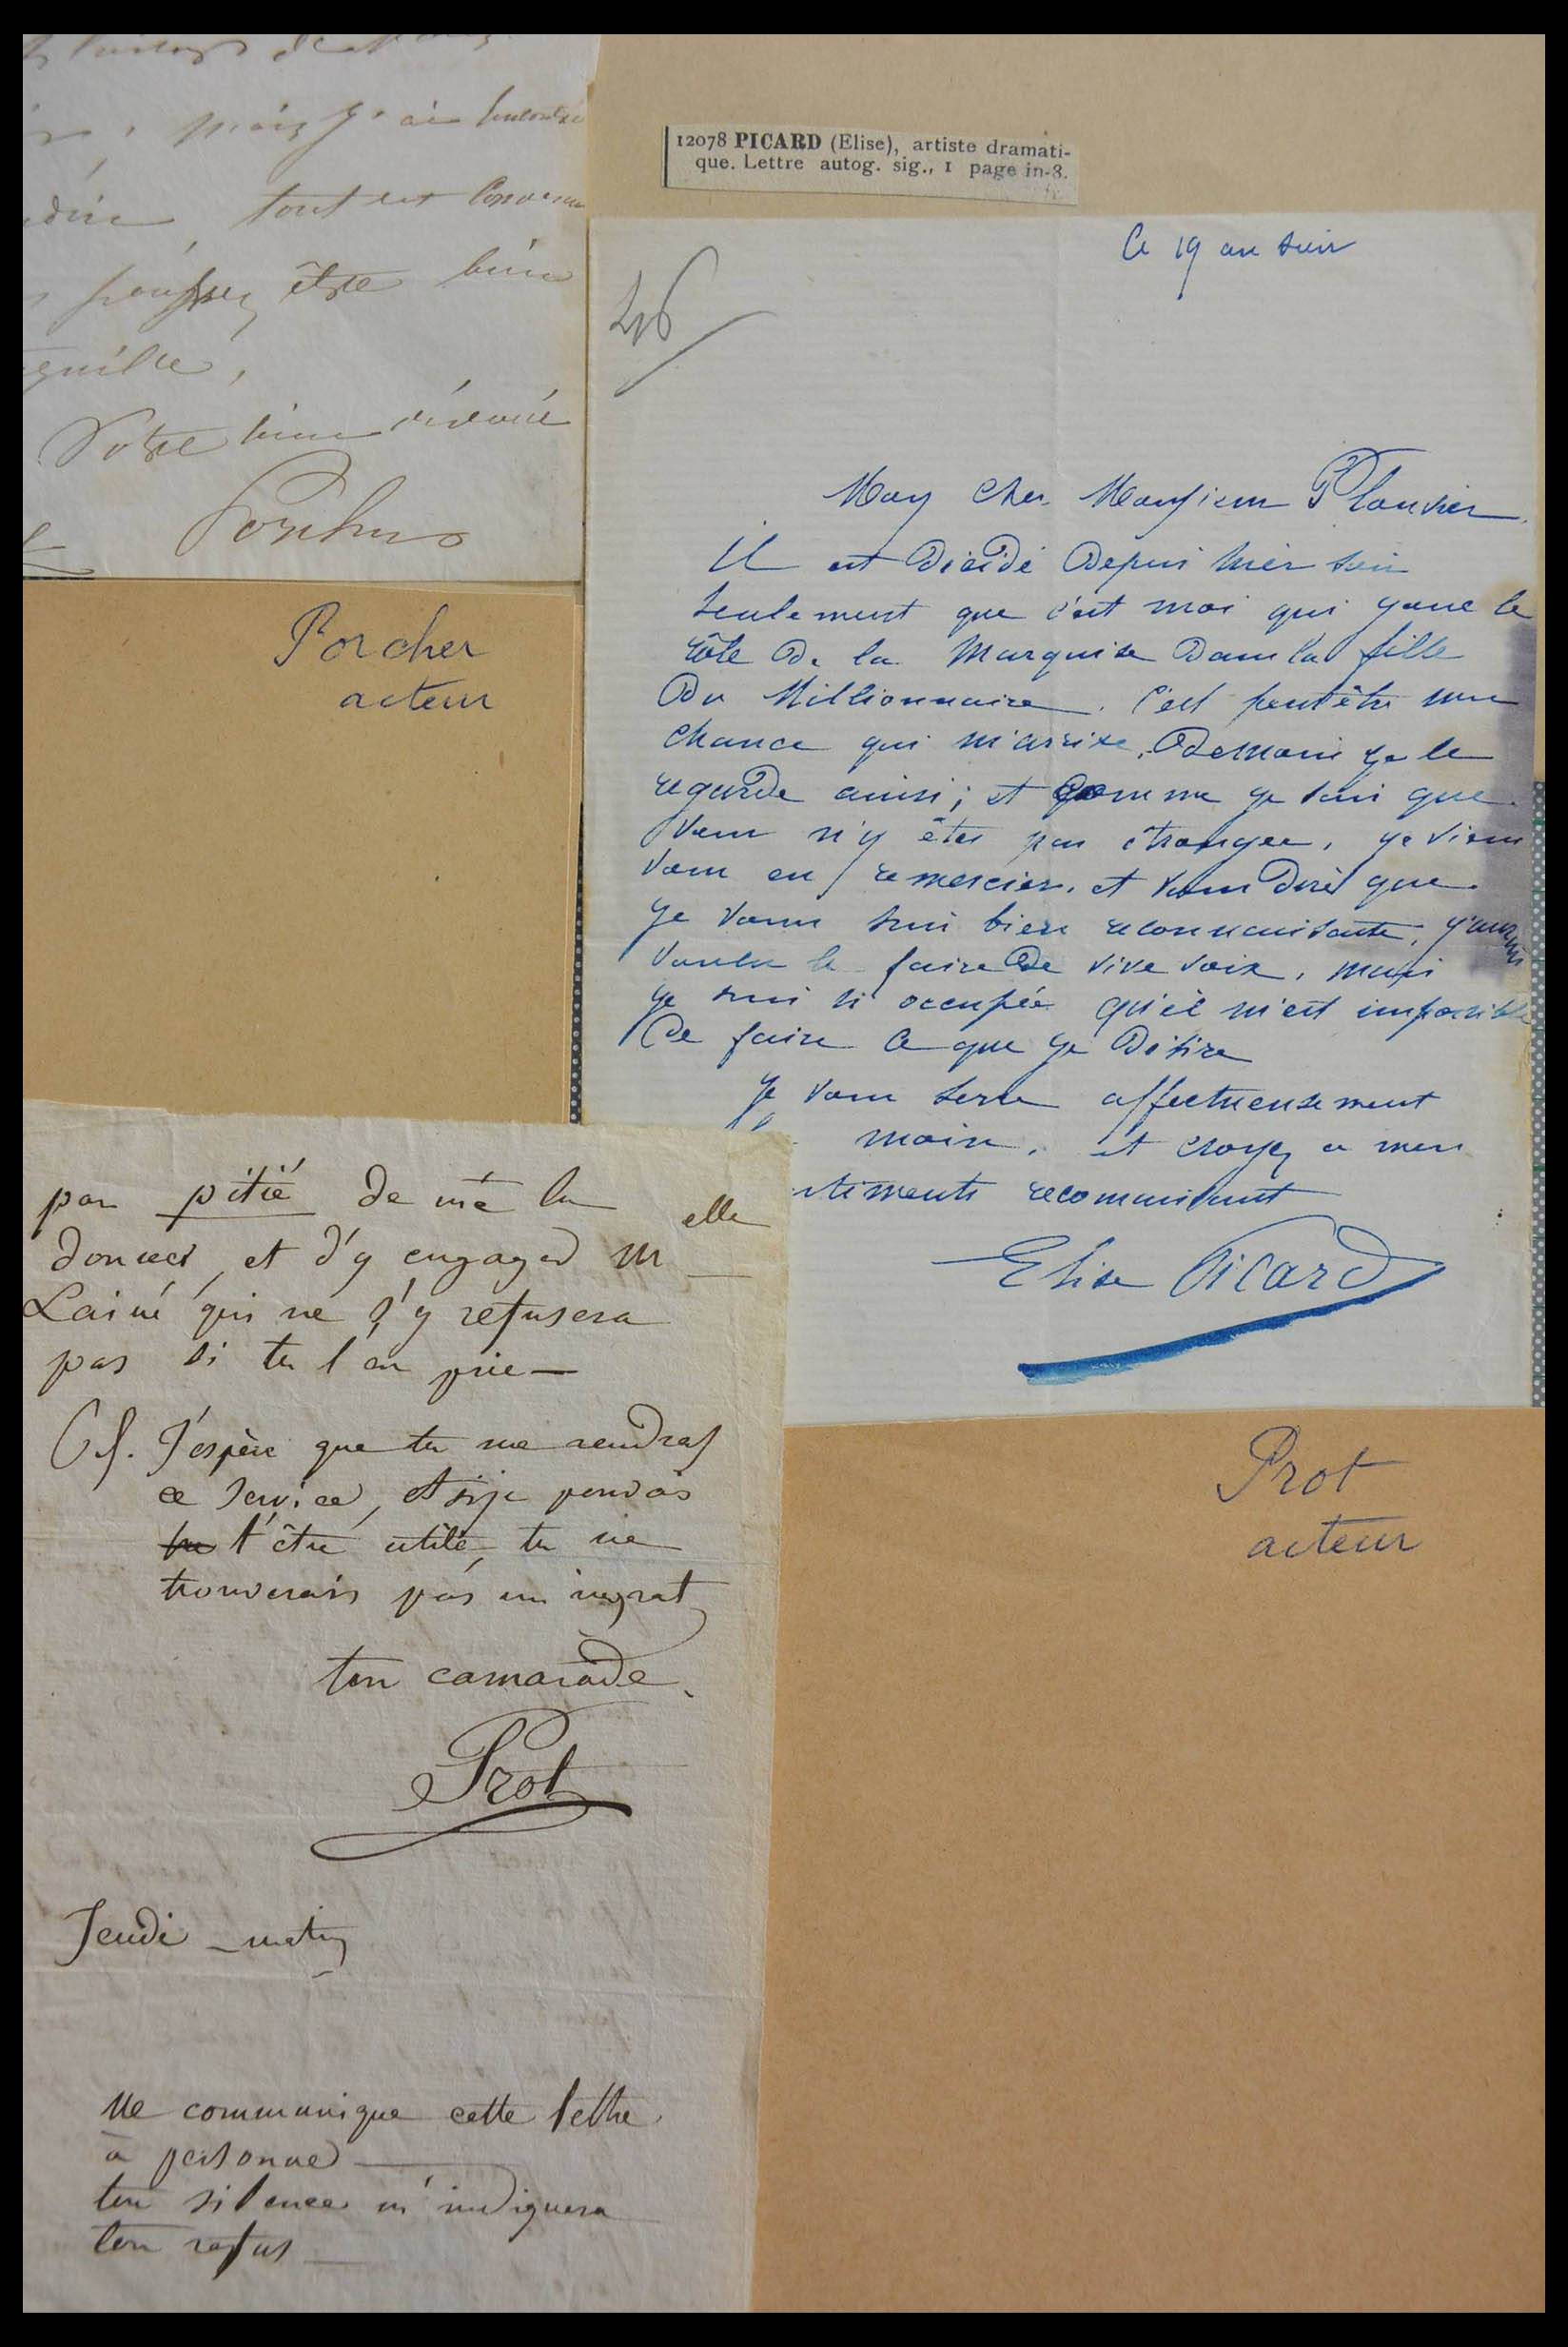 mais j'ai
tout est convenu
être bien
Votre bien dévoué
Porcher
Porcher
acteur
12078 PICARD (Elise), artiste dramati-
que. Lettre autog. sig., 1 page in-8.
Ce 19 au soir
46
Mon cher Monsieur Plouvier
Il est décidé depuis hier soir
seulement que c'est moi qui joue le
rôle de la Marquise dans la fille
du Millionnaire. C'est peut être une
chance qui m'arrive, je le
regarde ainsi; et comme je sais que
vous n'y êtes pas étranger, je viens
vous en remercier, et vous dire que
je vous suis bien reconnaissante, j'aurais
voulu le faire de vive voix, mais
je suis si occupée qu'il m'est impossible
de faire ce que je désire
Je vous serre affectueusement
mains, et croyez a mes
ntiments reconnaissant
Elise Picard
par pitié de me la
donner, et d'y engager Melle
Lainé qui ne s'y refusera
pas si tu l'en prie —
J'espère que tu me rendras
ce service, et si je pouvais
t'être utile, tu ne
trouverais pas un ingrat
ton camarade.
Prot
Jeudi - matin
Ne communique cette lettre
à personne —
ton silence m'indiquera
ton refus —
Prot
acteur